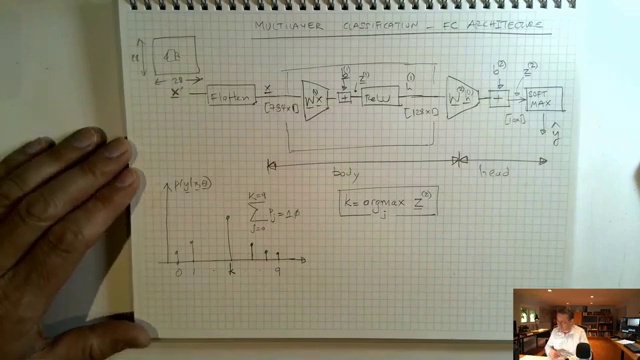 MULTILAYER CLASSIFICATION - FC ARCHITECTURE
28
28
x'
Flatten
x
[784x1]
W⁽¹⁾x
b⁽¹⁾
+
z⁽¹⁾
ReLU
h⁽¹⁾
[128x1]
W⁽²⁾h⁽¹⁾
b⁽²⁾
+
z⁽²⁾
[10x1]
SOFT
MAX
ŷ
body
head
p(y|x,θ)
K=9
∑ Pj = 1.0
j=0
0 1 k 9
K = argmax z⁽²⁾
j